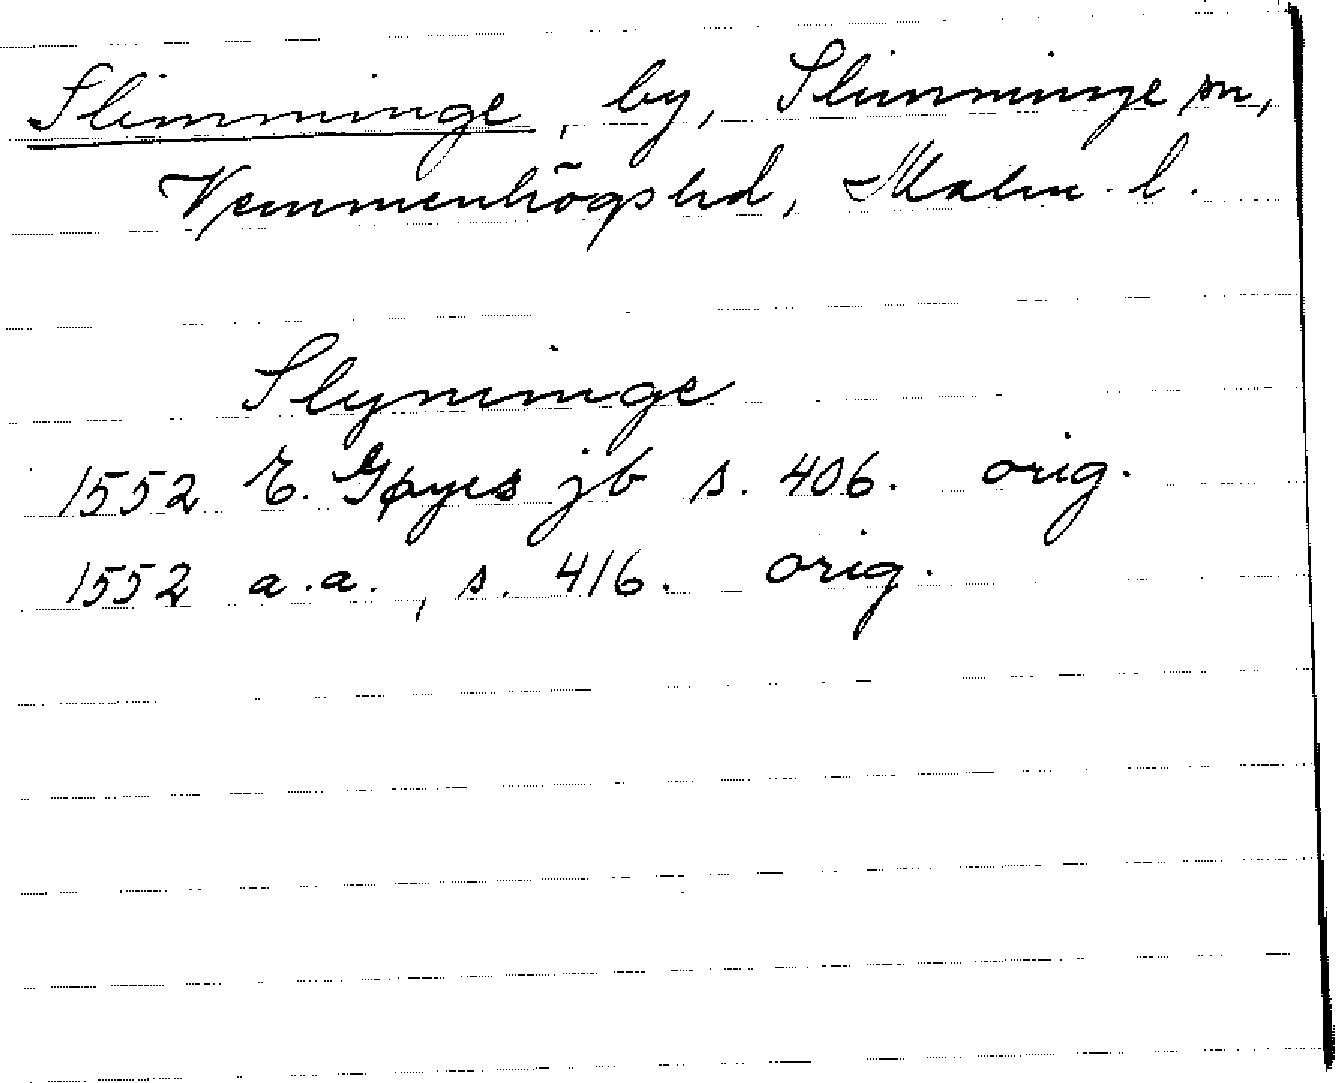 Slimminge, by, Slimminge sn,
Vemmenhögs hd, Malm. l.
Slyminge
1552 E. Gøyes jb s. 406. orig.
1552 a.a., s. 416. orig.